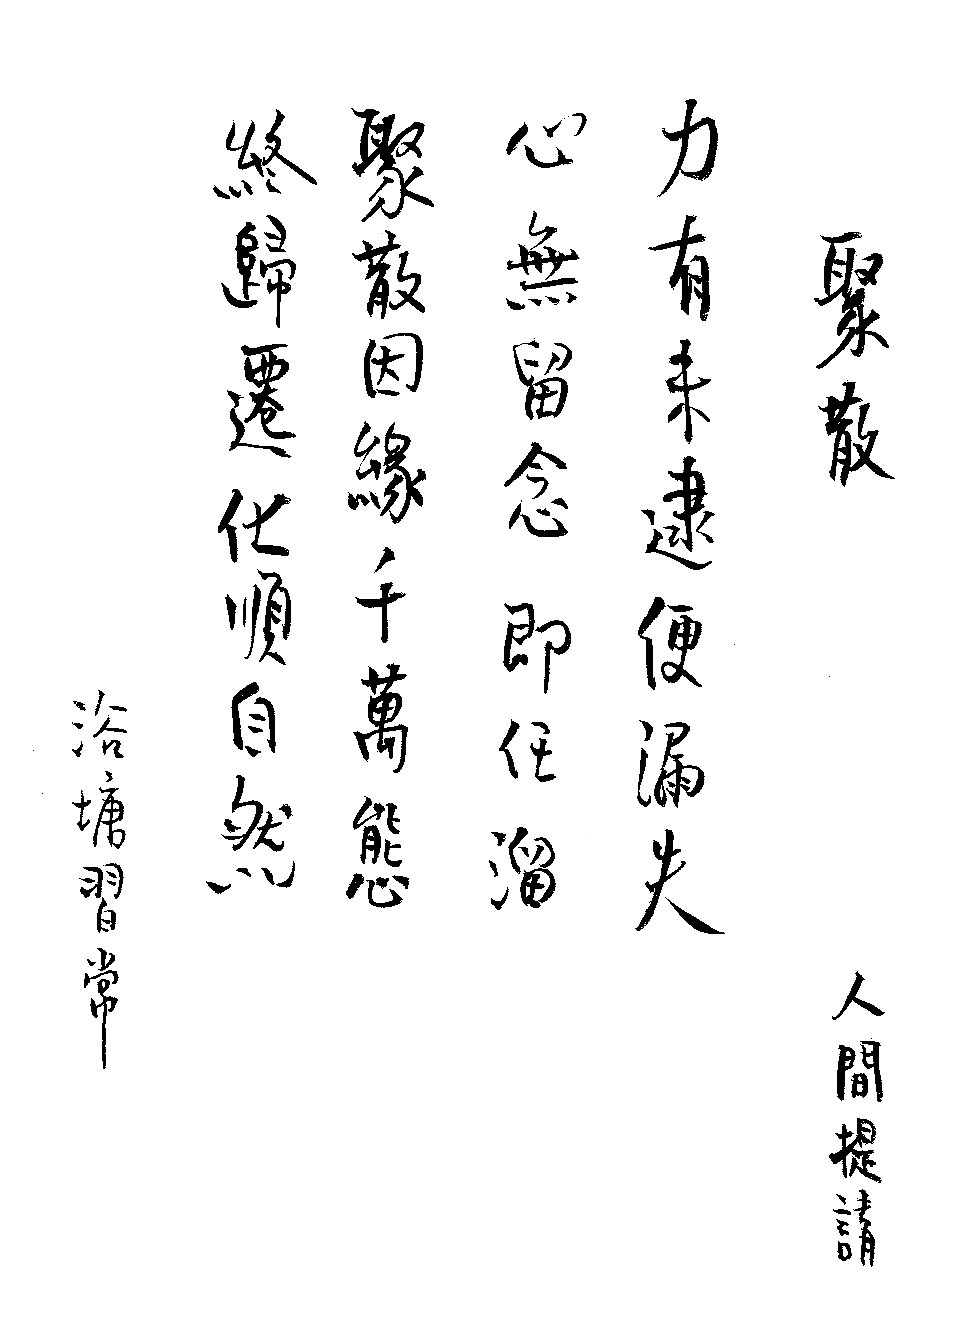 聚散
人間提請
力有未逮便漏失
心無留念即任溜
聚散因緣千萬態
終歸遷化順自然
浴塘習常